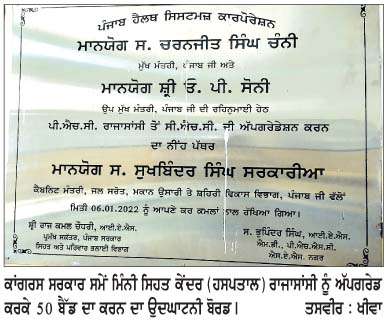 ਪੰਜਾਬ ਹੈਲਥ ਸਿਸਟਮਜ਼ ਕਾਰਪੋਰੇਸ਼ਨ
ਮਾਨਯੋਗ ਸ. ਚਰਨਜੀਤ ਸਿੰਘ ਚੰਨੀ
ਮੁੱਖ ਮੰਤਰੀ, ਪੰਜਾਬ ਜੀ ਅਤੇ
ਮਾਨਯੋਗ ਸ਼੍ਰੀ ਓ. ਪੀ. ਸੋਨੀ
ਉਪ ਮੁੱਖ ਮੰਤਰੀ, ਪੰਜਾਬ ਜੀ ਦੀ ਰਹਿਨੁਮਾਈ ਹੇਠ
ਪੀ.ਐਚ.ਸੀ. ਰਾਜਾਸਾਂਸੀ ਤੋਂ ਸੀ.ਐਚ.ਸੀ. ਜੀ ਅੱਪਗਰੇਡੇਸ਼ਨ ਕਰਨ
ਦਾ ਨੀਂਹ ਪੱਥਰ
ਮਾਨਯੋਗ ਸ. ਸੁਖਬਿੰਦਰ ਸਿੰਘ ਸਰਕਾਰੀਆ
ਕੈਬਨਿਟ ਮੰਤਰੀ, ਜਲ ਸਰੋਤ, ਮਕਾਨ ਉਸਾਰੀ ਤੇ ਸ਼ਹਿਰੀ ਵਿਕਾਸ ਵਿਭਾਗ, ਪੰਜਾਬ ਜੀ ਵੱਲੋਂ
ਮਿਤੀ 06.01.2022 ਨੂੰ ਆਪਣੇ ਕਰ ਕਮਲਾਂ ਨਾਲ ਰੱਖਿਆ ਗਿਆ।
ਸ਼੍ਰੀ ਰਾਜ ਕਮਲ ਚੌਧਰੀ, ਆਈ.ਏ.ਐਸ.
ਪ੍ਰਮੁੱਖ ਸਕੱਤਰ, ਪੰਜਾਬ ਸਰਕਾਰ
ਸਿਹਤ ਅਤੇ ਪਰਿਵਾਰ ਭਲਾਈ ਵਿਭਾਗ
ਸ. ਭੁਪਿੰਦਰ ਸਿੰਘ, ਆਈ.ਏ.ਐਸ.
ਐਮ.ਡੀ., ਪੀ.ਐਚ.ਐਸ.ਸੀ.
ਐਸ.ਏ.ਐਸ. ਨਗਰ
ਕਾਂਗਰਸ ਸਰਕਾਰ ਸਮੇਂ ਮਿੰਨੀ ਸਿਹਤ ਕੇਂਦਰ (ਹਸਪਤਾਲ) ਰਾਜਾਸਾਂਸੀ ਨੂੰ ਅੱਪਗਰੇਡ
ਕਰਕੇ 50 ਬੈੱਡ ਦਾ ਕਰਨ ਦਾ ਉਦਘਾਟਨੀ ਬੋਰਡ। ਤਸਵੀਰ : ਖੀਵਾ